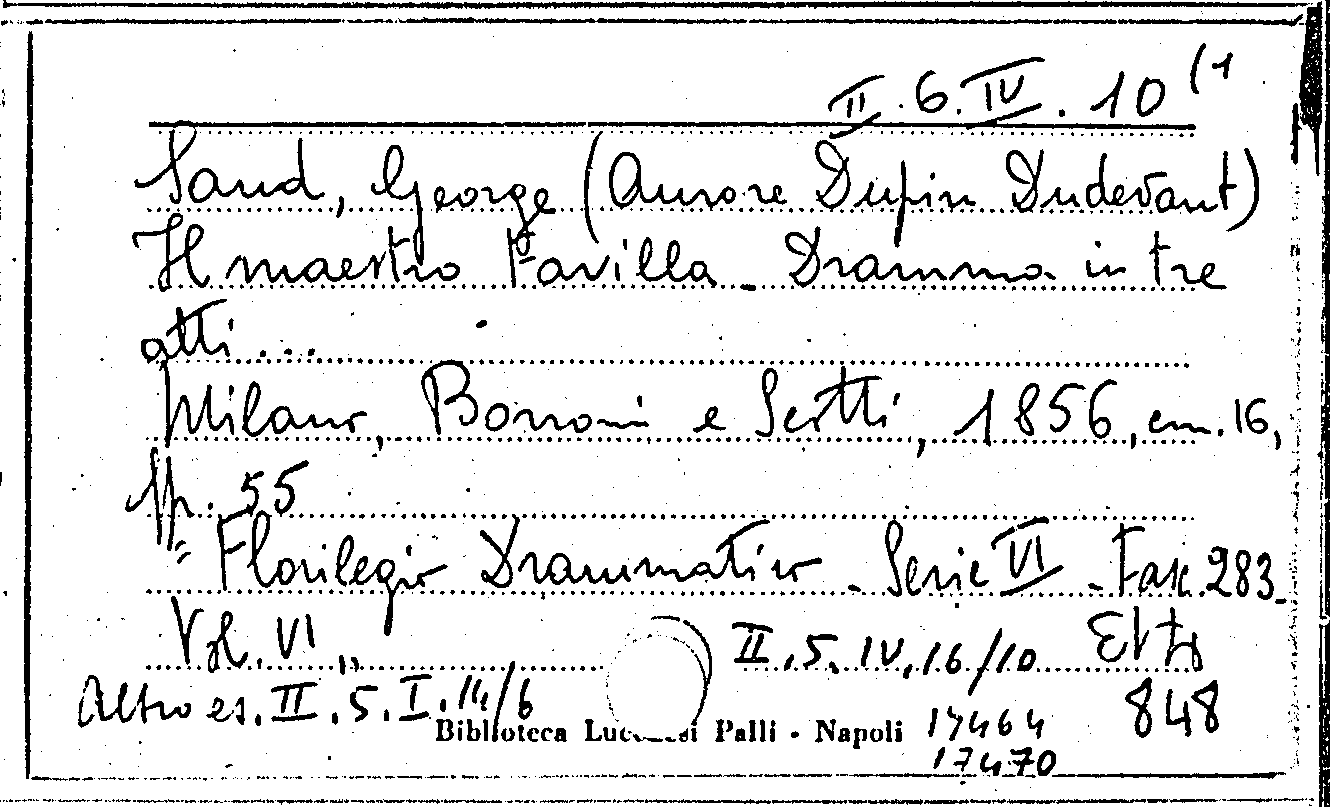 II.6.IV.10(1
Sand, George (Aurore Dupin Dudevant)
Il maestro Favilla - Dramma in tre
atti...
Milano, Borroni e Scotti, 1856, cm. 16,
pp. 55
"Florilegio Drammatico - Serie VI - Fasc. 283 -
Vol. VI" II.5.IV.16/10
Altro es. II.5.I.14/6 848
Biblioteca Lucchesi Palli - Napoli 17464
17470